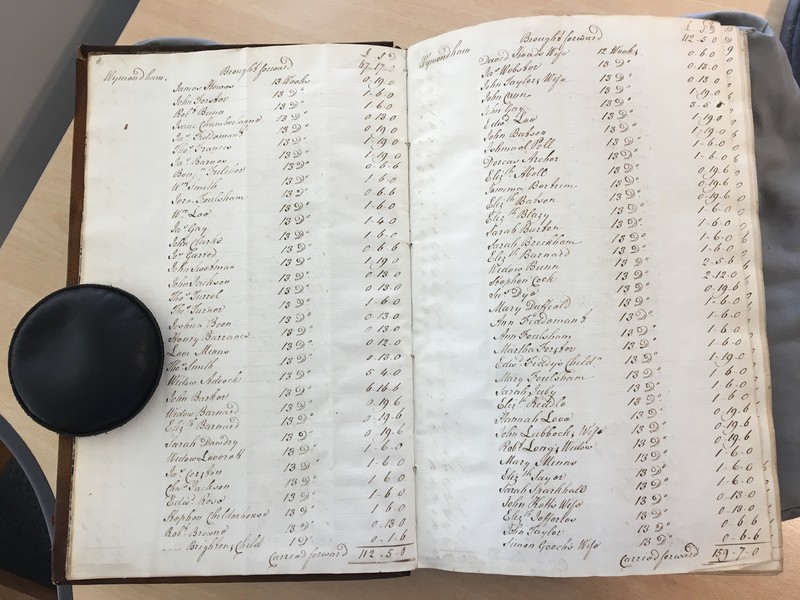 Wymondham. Brought forward £ S D 67-17-
James Howes 13 Weeks 0-19-0
John Forster 13 Do 1-6-0
Robt Bunn 13 Do 1-6-0
Isaac Chamberlayne 13 Do 0 13 0
13 Do 0 19 0
Thos Francis 13 Do 1-19-0
Jas Barnes 13 Do 1-19-0
Benjn Fulcher 13 Do 0-6-6
Wm Smith 13 Do 1-6-0
Jere Foulsham 13 Do 0-6-6
Wm Loo 13 Do 1-6-0
Jas Gay 13 Do 1-4-0
John Clarke 13 Do 1-6-0
Jos Garrod 13 Do 0 6 6
John Sweetman 13 Do 1-19 0
John Jackson 13 Do 0 13 0
Thos Turrel 13 Do 0 13 0
Thos Turner 13 Do 1-6-0
Joshua Been 13 Do 0 13 0
Henry Barrance 13 Do 0 13 0
Levi Minns 13 Do 0 12 0
Thos Smith 13 Do 0 13 0
Widow Adcock 13 Do 5 4-0
John Barker 13 Do 6 16 6
Widow Barnard 13 Do 0 19 6
Elizth Barnard 13 Do 0-19-6
Sarah Dawdry 13 Do 0 19 6
Widow 13 Do 1-6-0
Jas 13 Do 1-6-0
Chas Jackson 13 Do 1 6 0
Edwd Rose 13 Do 1-6-0
Stephen Childerhouse 13 Do 1 6 0
Robt Browne 13 Do 0 13-0
Brighten's Child 1 Do 0-1-6
Carried forward 112-5-0
Wymondham Brought forward £ S D 112-5-0
David Wife 12 Weeks 0 6 0
Jas Webster 13 Do 0-13-0
John Taylor's Wife 13 Do 0-13-0
John Cann 13 Do 1-6-0
John Gay 13 Do 1-19-0
Edwd Loo 13 Do 3-5-
John Batson 13 Do 1-19-0
Ishmael Poll 13 Do 1-19 0
Dorcas Archer 13 Do 1-6-0
Elizth Abell 13 Do 1-6-0
Jemima Bertrum 13 Do 0-19-6
Elizth Batson 13 Do 0-19-6
Elizth Blazy 13 Do 0-19-6
Sarah Burton 13 Do 1-6-0
Sarah Breckham 13 Do 1-6-0
Elizth Barnard 13 Do 1-6-0
Widow Bunn 13 Do 1-6-0
Stephen Cook 13 Do 2-5-6
Dye 13 Do 2-12-0
Mary Duffield 13 Do 0-19-6
Ann 13 Do 1-6-0
Ann Foulsham 13 Do 1-6-0
Martha Forster 13 Do 1-6-0
Edwd Fiddy's Childn 13 Do 1-19-0
Mary Foulsham 13 Do 1-6-0
Sarah Juby 13 Do 1-6-0
Elizth Kiddle 13 Do 1-6-0
Hannah Love 13 Do 0-19-6
John Lubbock's Wife 13 Do 0-19-6
Robt Long's Widow 13 Do 0-19-6
Mary Minns 13 Do 1-6-0
Elizth Sayer 13 Do 1-6-0
Sarah Sparkhall 13 Do 1-6-0
John Wife 13 Do 0-13-0
Elizth Jefferies 13 Do 0-13-0
John Taylor 13 Do 0-6-6
Simon Gooch's Wife 13 Do 0-6-6
Carried forward 159-7-0